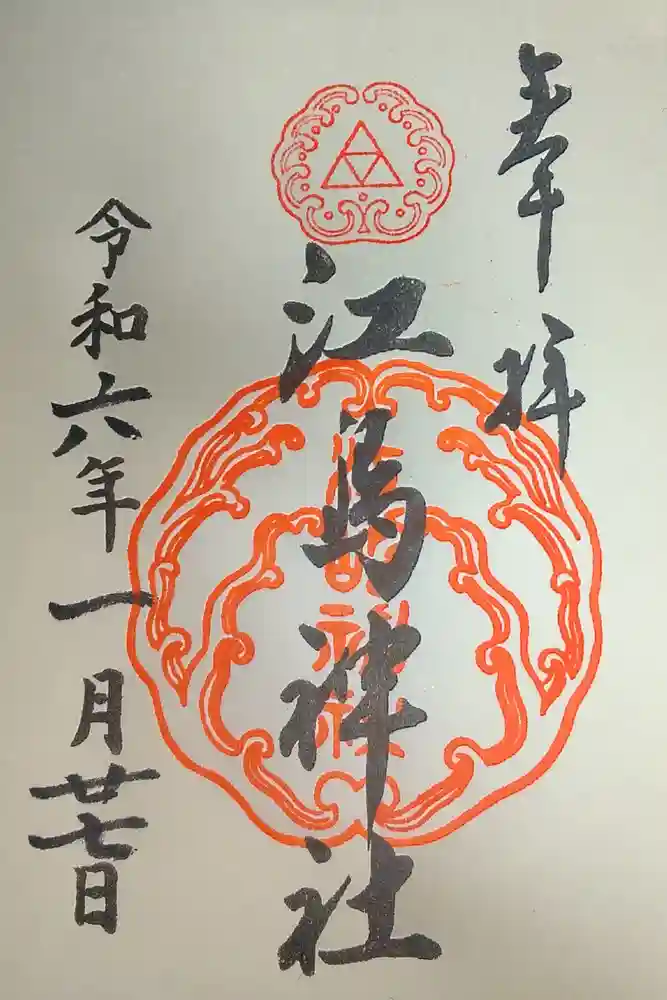 奉拝
江島神社
令和六年一月廿七日